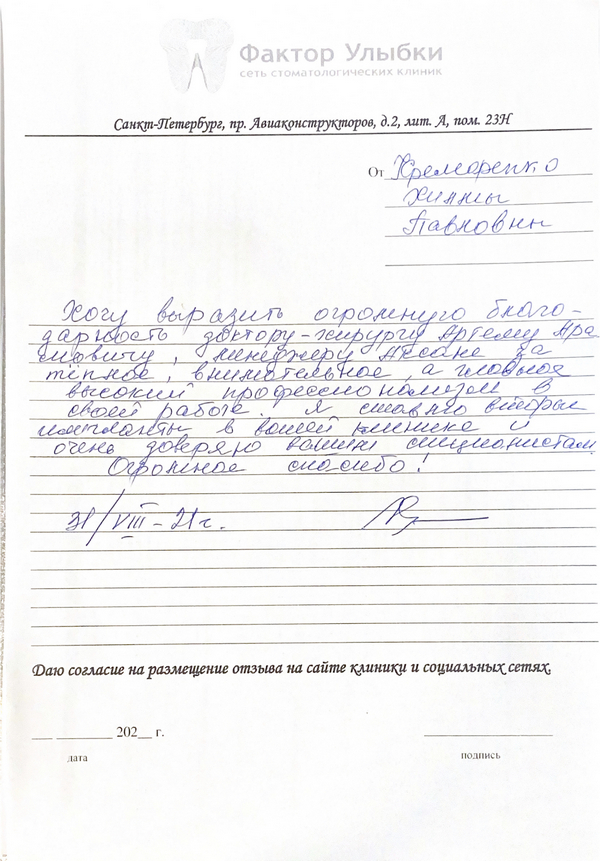 Фактор Улыбки
сеть стоматологических клиник
Санкт-Петербург, пр. Авиаконструкторов, д.2, лит. А, пом. 23Н
От Кремаренко
Павловны
Хочу выразить огромную благо-
дарность доктору-хирургу Артему Ара
мовичу, менеджеру Аксане за
тёплое, внимательное, а главное
высокий профессионализм в
своей работе. Я ставлю вторые
импланты в вашей клинике и
очень доверяю вашим специалистам.
Огромное спасибо!
31/VIII - 21 г.
Даю согласие на размещение отзыва на сайте клиники и социальных сетях.
___ ________ 202__ г.
дата
подпись